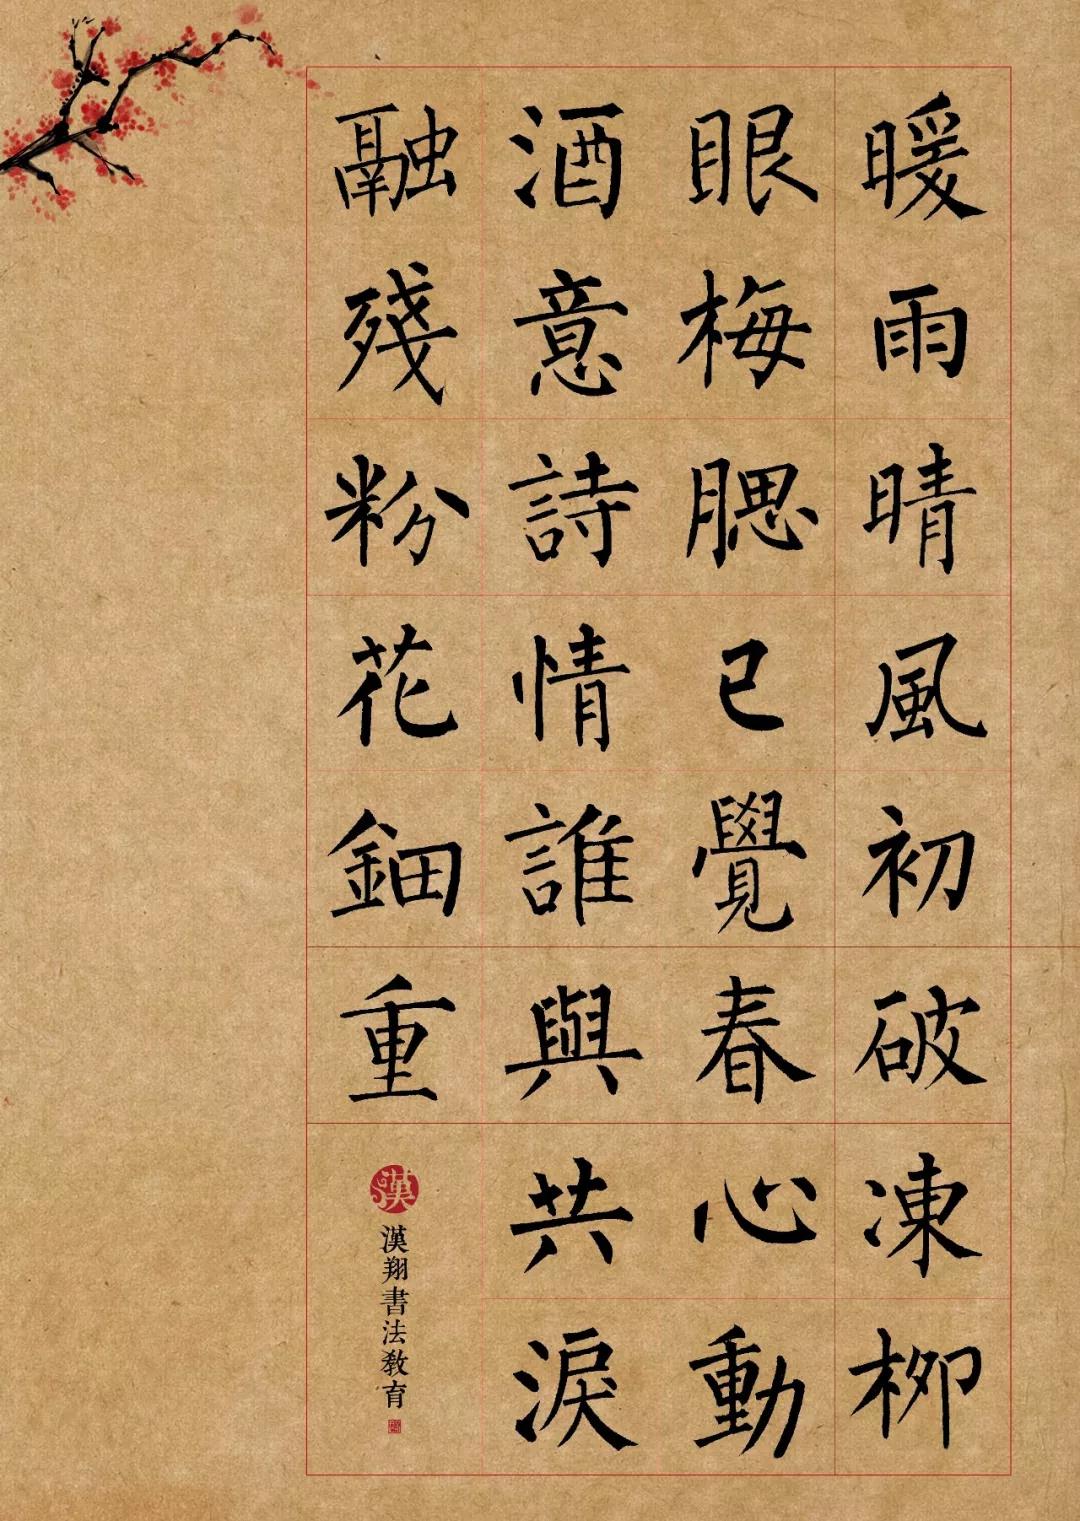 暖雨晴風初破凍柳
眼梅腮已覺春心動
酒意詩情誰與共淚
融殘粉花鈿重
漢
漢翔書法教育